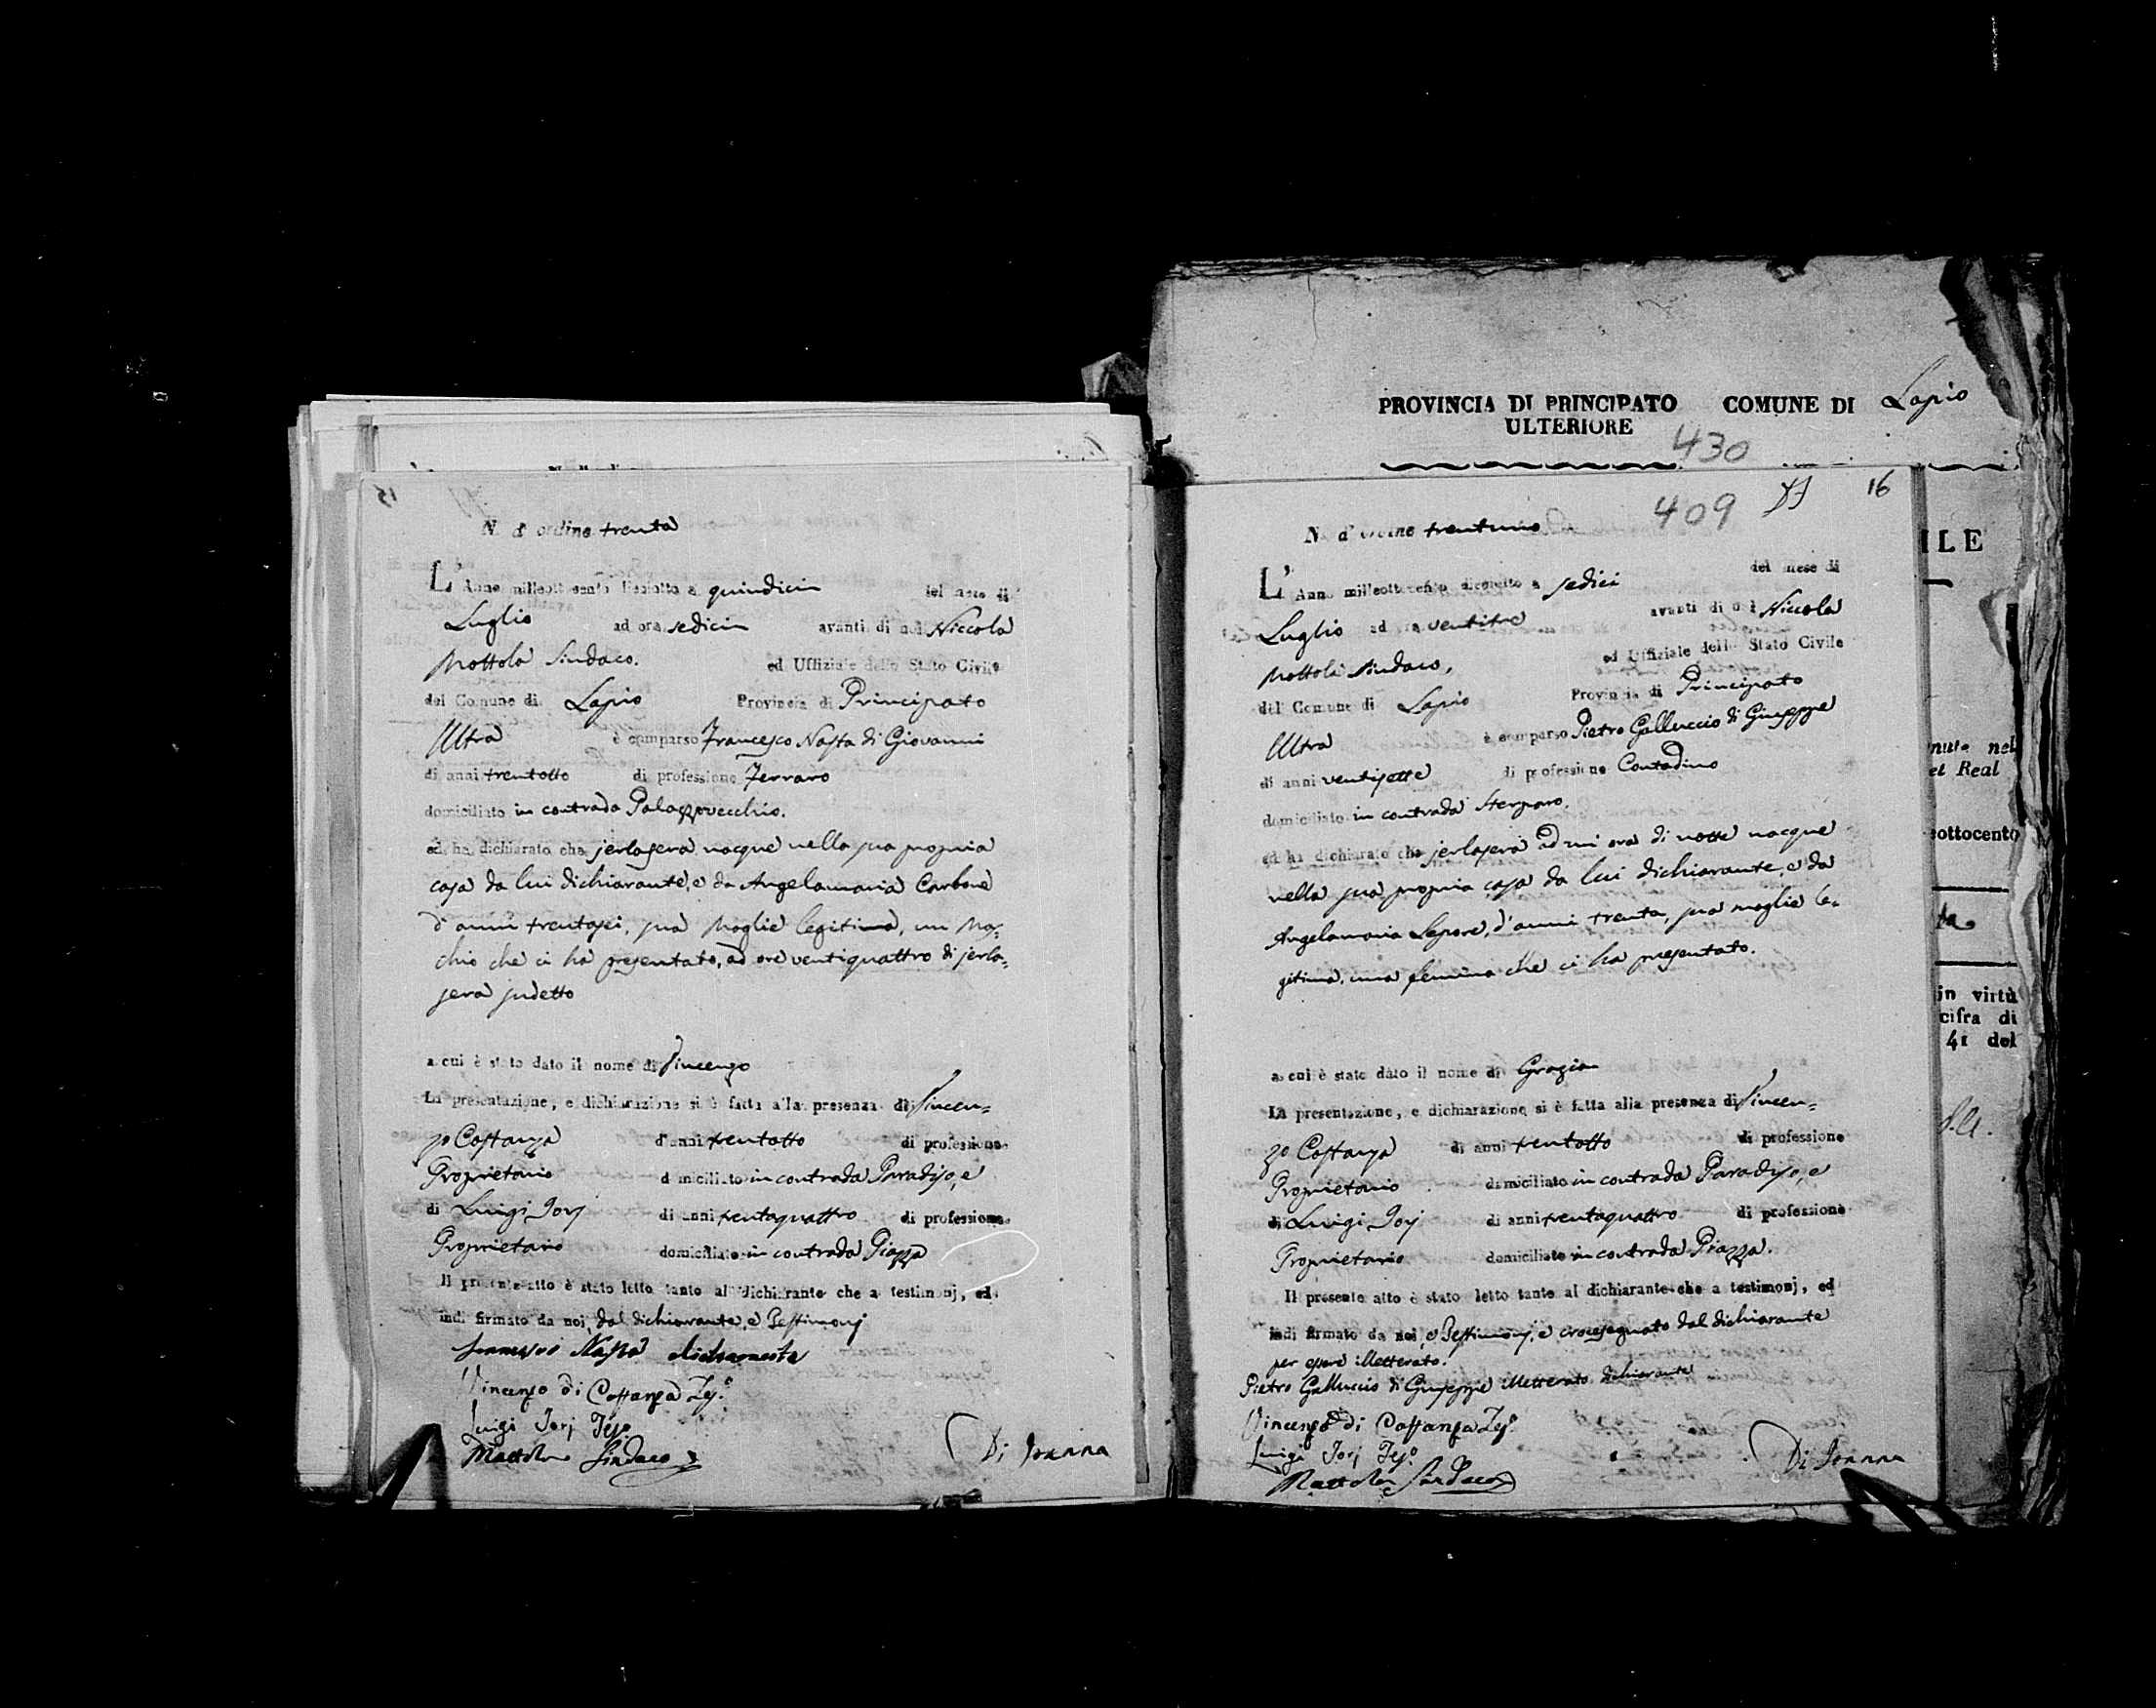 15
N. d'ordine trenta
L'Anno milleottocento dieciotto a quindici del mese di
Luglio ad ora sedici avanti di noi Niccola
Mottola Sindaco. ed Uffiziale dello Stato Civile
del Comune di Lapio Provincia di Principato
Ultra è comparso Francesco Nasta di Giovanni
di anni trentotto di professione Ferraro
domiciliato in contrada Palazzovecchio.
ed ha dichiarato che jerlasera nacque nella sua propria
casa da lui dichiarante, e da Angelamaria Carbone
d'anni trentasei, sua Moglie legitima, un Ma=
chio che ci ha presentato, ad ore ventiquattro di jerla=
sera sudetto
a cui è stato dato il nome di Vincenzo
La presentazione, e dichiarazione si è fatta alla presenza di Vincen=
zo Costanza d'anni trentotto di professione
Proprietario domiciliato in contrada Paradiso, e
di Luigi Jorj di anni trentaquattro di professione
Proprietario domiciliato in contrada Piazza
Il presente atto è stato letto tanto al dichiarante che a testimonj, ed
indi firmato da noi, dal dichiarante, e Testimonj
Francesco Nasta dichiarante
Vincenzo di Costanza Tes.º
Luigi Jorj Tes.º
Mottola Sindaco
Di Ioanna
PROVINCIA DI PRINCIPATO COMUNE DI Lapio
ULTERIORE
430
409
16
N. d'ordine trentuno
L'Anno milleottocento dieciotto a sedici del mese di
Luglio ad ora ventitre avanti di noi Niccola
Mottola Sindaco, ed Uffiziale dello Stato Civile
del Comune di Lapio Provincia di Principato
Ultra è comparso Pietro Galluccio di Giuseppe
di anni ventisette di professione Contadino
domiciliato in contrada Sterparo.
ed ha dichiarato che jerlasera ad un ora di notte nacque
nella sua propria casa da lui dichiarante, e da
Angelamaria Lepore, d'anni trenta, sua moglie le=
gitima, una femina che ci ha presentato.
a cui è stato dato il nome di Grazia
La presentazione, e dichiarazione si è fatta alla presenza di Vincen=
zo Costanza di anni trentotto di professione
Proprietario domiciliato in contrada Paradiso, e
di Luigi Jorj di anni trentaquattro di professione
Proprietario domiciliato in contrada Piazza.
Il presente atto è stato letto tanto al dichiarante che a testimonj, ed
indi firmato da noi, e Testimonj, e crocesegnato dal dichiarante
per essere illetterato.
Pietro Galluccio di Giuseppe illetterato dichiarante
Vincenzo di Costanza Tes.º
Luigi Jorj Tes.º
Mottola Sindaco
Di Ioanna
ILE
nute nel
el Real
eottocento
in virtù
cifra di
41 del